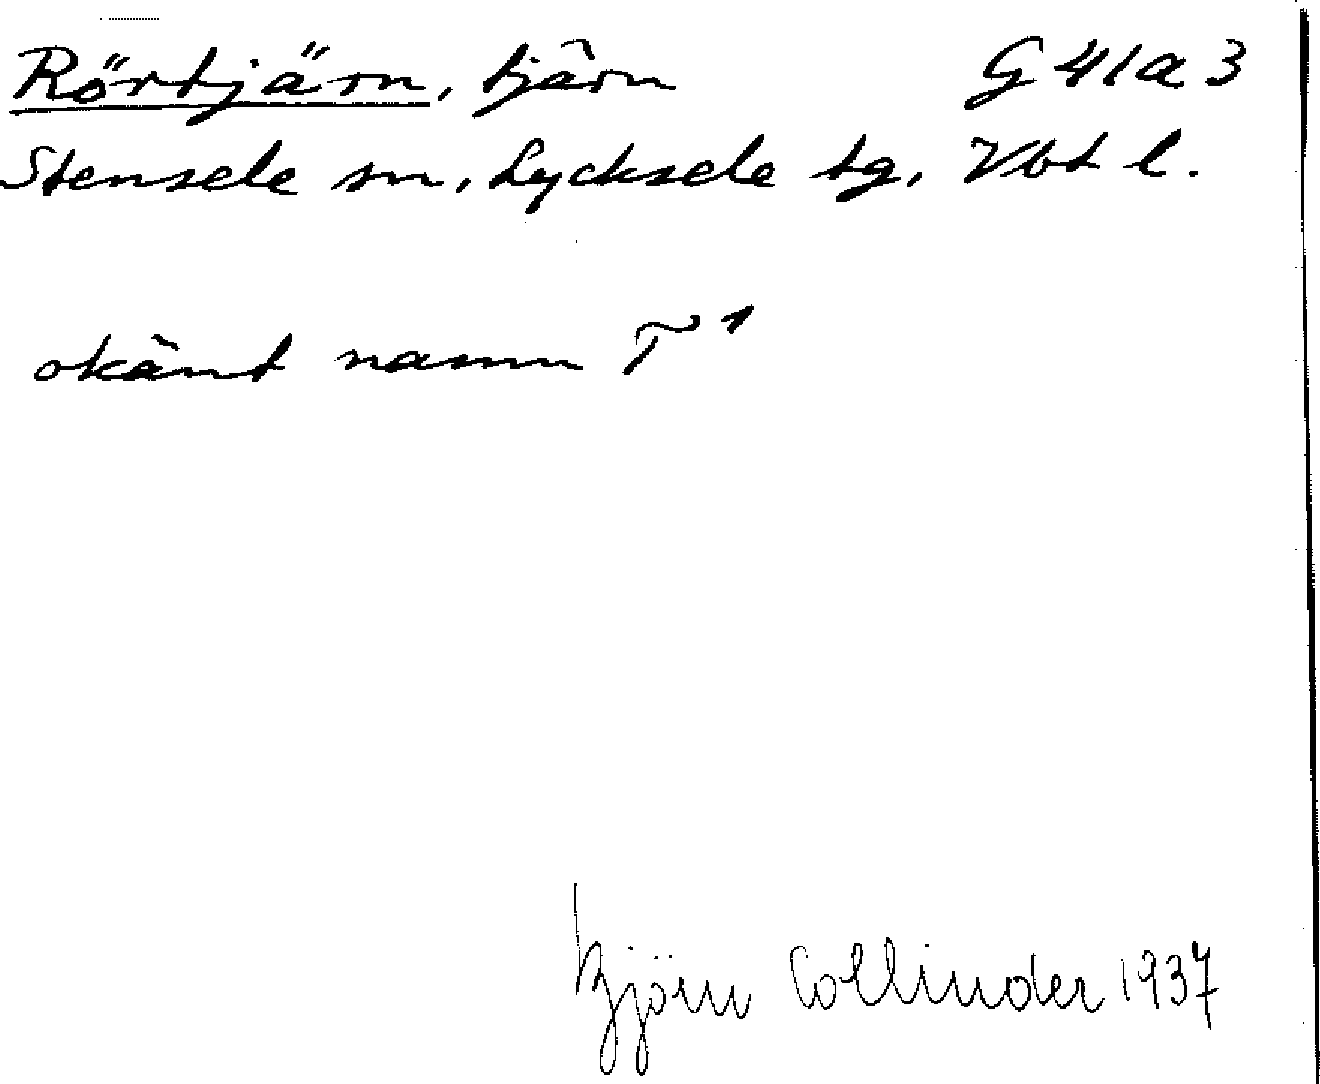 Rörtjärn, tjärn G 41 a 3
Stensele sn, Lycksele tg, Vbt l.
okänt namn T¹
Björn Collinder 1937